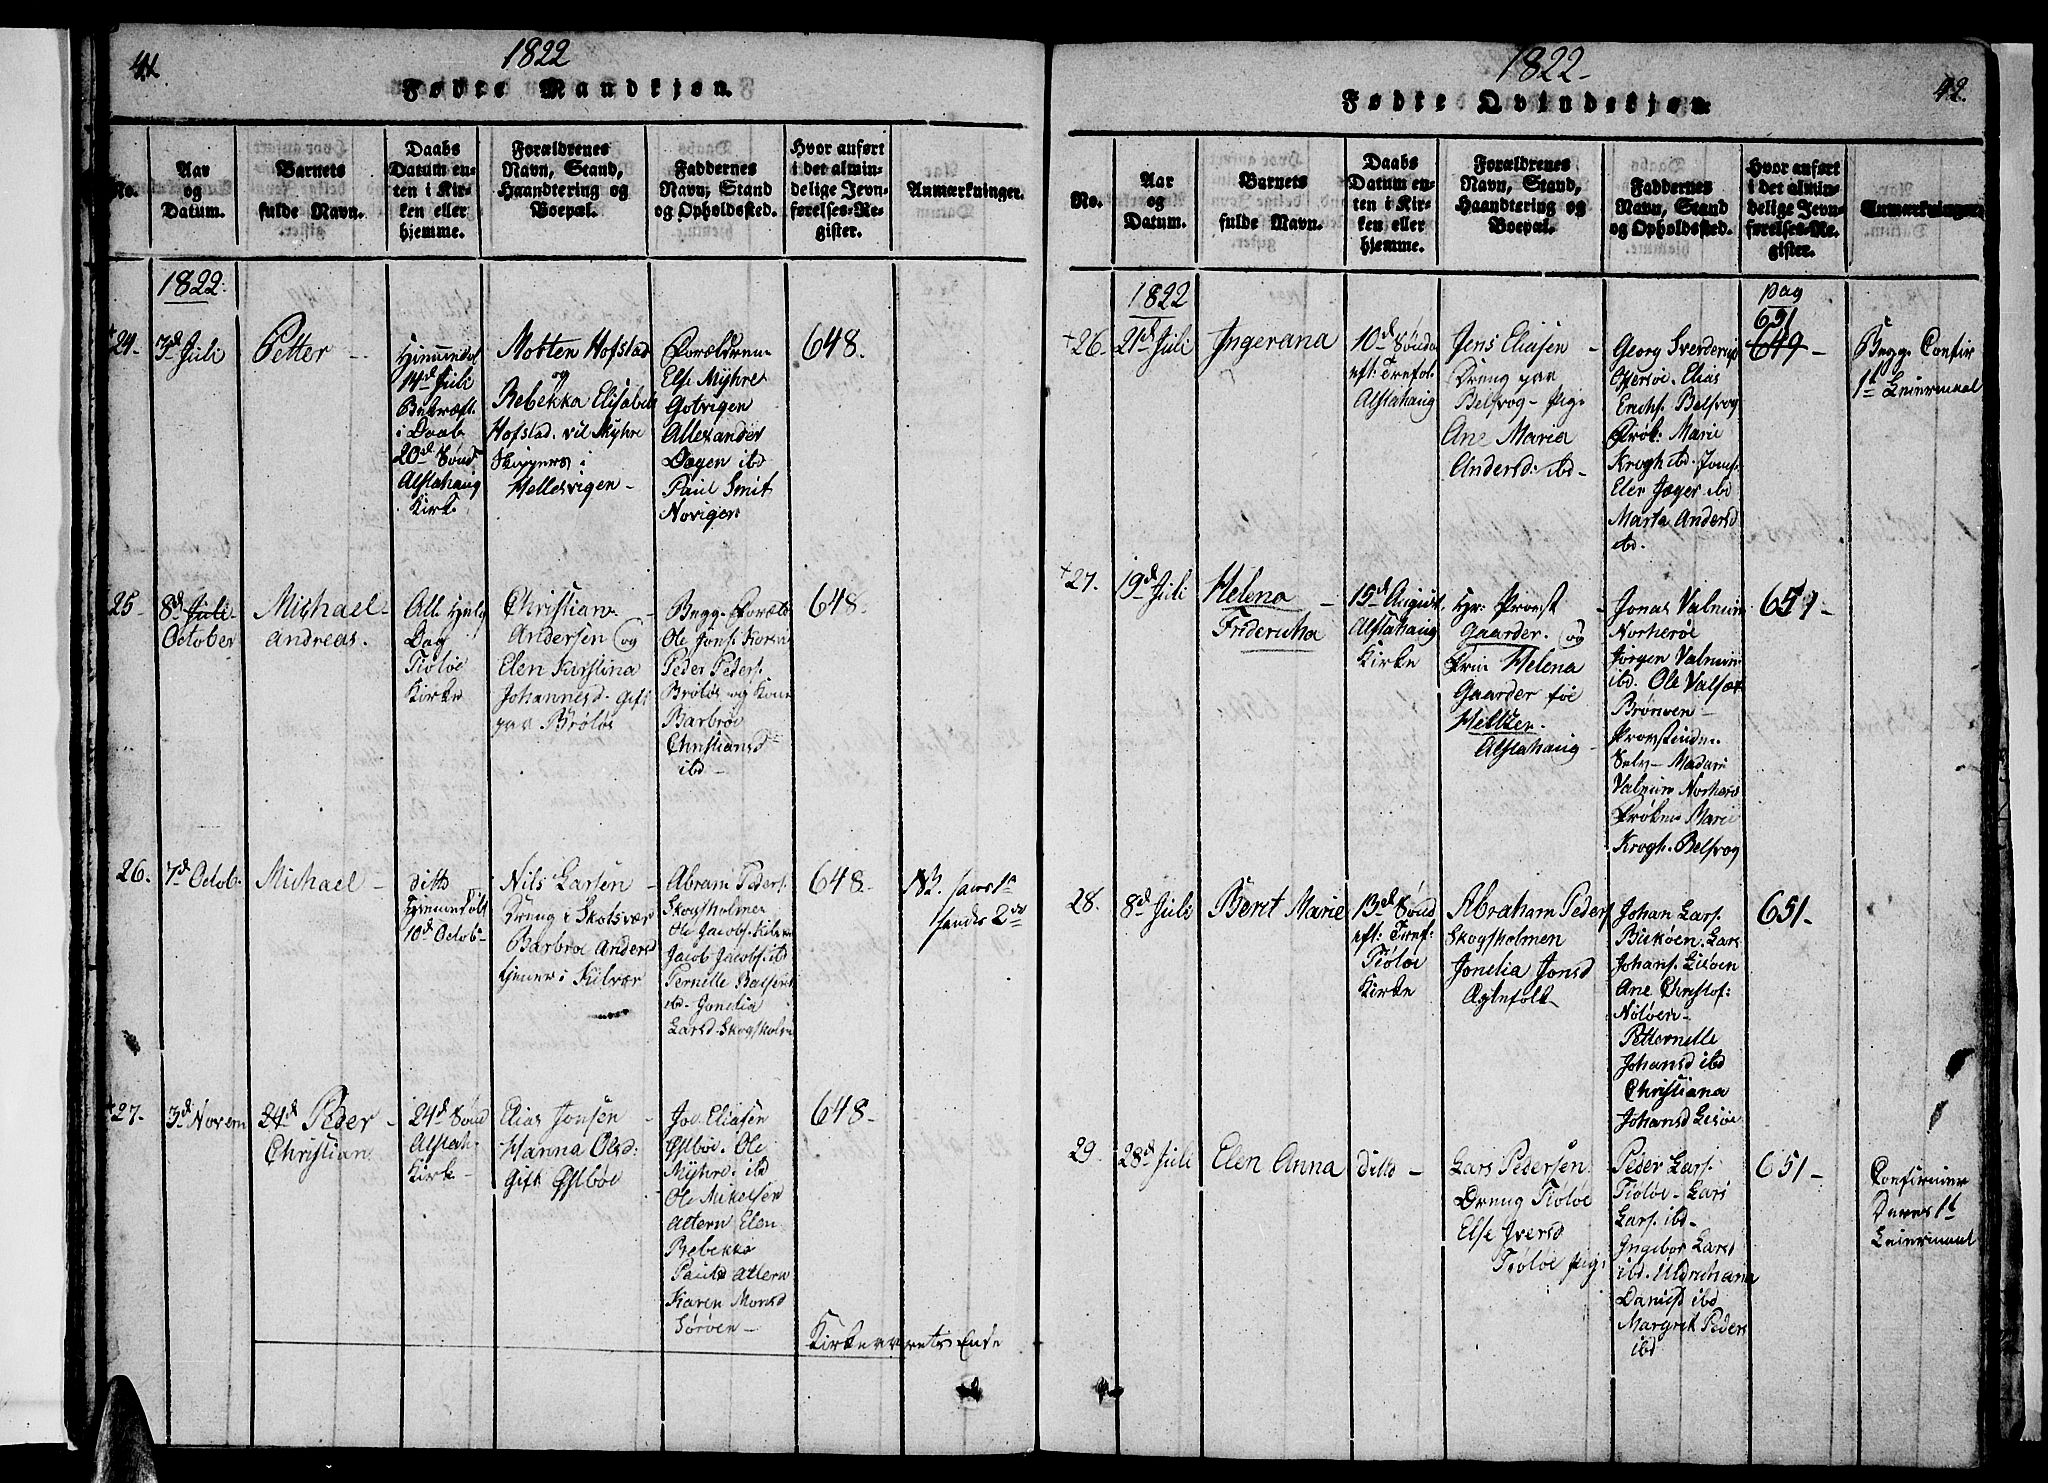 41
1822
Fødte Mandkjøn.
No.
Aar
og
Datum.
Barnets
fulde Navn.
Daabs
Datum en-
ten i Kir-
ken eller
hjemme.
Forældrenes
Navn, Stand,
Haandtering og
Boepæl.
Faddernes
Navn, Stand
og Opholdssted.
Hvor anført
i det almin-
delige Jevn-
førelses-Re-
gister.
Anmærkninger.
1822
24.
3d Juli
Petter
Hjemmedøbt
14d Juli
Bekræft.
i Daab
20d Sønd
Alstahaug
Kirke
Morten Hofstad
og
Rebekka Elisabeth
Hofstad
Skippers i
Hellesvigen
Forældrene
Else Myhre
Gotvigen
Allexander
Dagen ibd
Paul Smit
Novigen
648.
25.
8d Juli
October
Michael
Andreas.
All Helg
Dag
Tiøtøe
Kirke
Christian
Andersen og
Elen Kirstina
Johannesd. Gift
paa Brøløs
Begg. Foræld
Ole Jons.
Peder Peders.
Brøløs og Kone
Barbroe
Christiansd
ibd
648.
26.
7d Octob.
Michael
ditto
hjemmedøbt
10d Octob.
Nils Larsen
Dreng i Skotsvær
Barbroe Andersd
tjener i Kilvær
Abram Peders.
Skogsholmen
Ole Jacobs. Kilvær
Jacob Jacobs. ibd
Pernille
ibd. Jonelia
Larsd. Skogsholm
648.
NB. hans 1te
hendes 2det
27.
3d Novem
24d Peder
Christian
24d Sønd
Alstah.
Kirke
Elias Jonsen
Hanna Olsd:
Gift Østbøe
Joh. Eliasen
Østbøe. Ole
Myhre. ibd
Ole Mikelsen
Altern Elen
Rebekka
Paulsd Altern
Karen Monsd
Sørøen
648
Kirkeaarets Ende
1822
Fødte Qvindekjøn.
42.
No.
Aar
og
Datum.
Barnets
fulde Navn.
Daabs
Datum en-
ten i Kir-
ken eller
hjemme.
Forældrenes
Navn, Stand,
Haandtering og
Boepæl.
Faddernes
Navn, Stand
og Opholdssted.
Hvor anført
i det almin-
delige Jevn-
førelses-Re-
gister.
Anmærkninger.
1822
26.
21d Juli
Ingerana
10d Sønd
eft: Trefol.
Alstahaug
Jens Eliasen
Dreng paa
Belsvog Pig:
Ane Maria
Andersd: ibd
Georg Sverdrup
Elias
Erichs. Belsvog
Frøk: Marie
Krogh ibd. Jomf.
Elen Jæger ibd
Marta Andersd
ibd.
pag
651
649
Begg. Confir
1te Leiermaal
27.
19d Juli
Helena
Fridericha
15d August
Alstahaug
Kirke
Hr: Provst
Gaarder. og
Frue Helena
Gaarder føe
Heltzen
Alstahaug
Jonas Valnum
Norherøe
Jørgen Valnum
ibd. Ole
Brønøen
Provstinden
Selv Madam
Valnum Norherøe
Frøken Marie
Krogh. Belsvog
651
28.
8d Juli
Berit Marie
13d Sønd
eft: Tref:
Tiøtøe
Kirke
Abraham Peders
Skogsholmen
Jonelia Jonsd
Johan Lars.
Lars
Johans.
Ane Christof:
Peternelle
Johansd ibd
Christiana
Johansd
651
29.
28d Juli
Elen Anna
ditto
Lars Pedersen
Dreng Tiøtøe
Else Iversd
Tiøtøe Pig:
Peder Lars.
Tiøtøe. Lars
Lars. ibd
Ingebor Larsd
ibd. Uldrichana
Danielsd ibd
Margret Peders
ibd
651
Confirmer
Deres 1te
Leiermaal